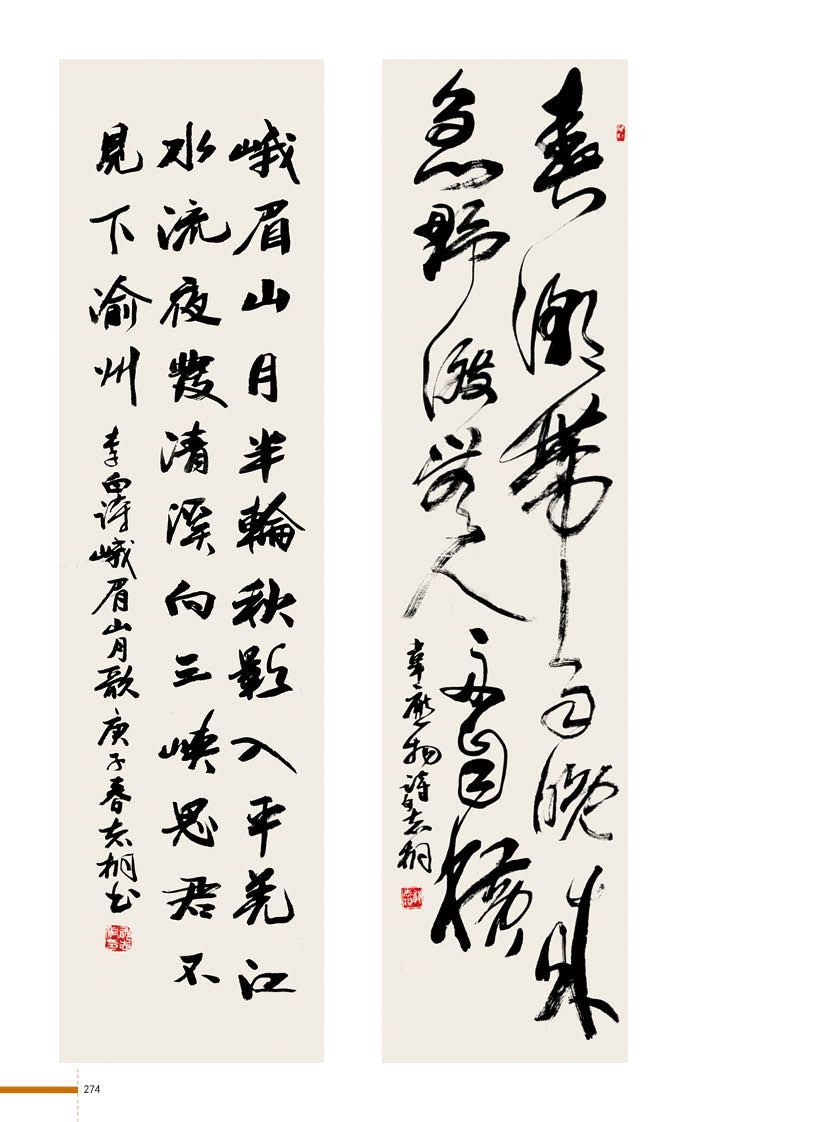 春潮帶雨晚來
急野渡無人舟自橫
韋應物詩句志桐
峨眉山月半輪秋影入平羌江
水流夜發清溪向三峽思君不
見下渝州
李白詩峨眉山月歌庚子春志桐书
274